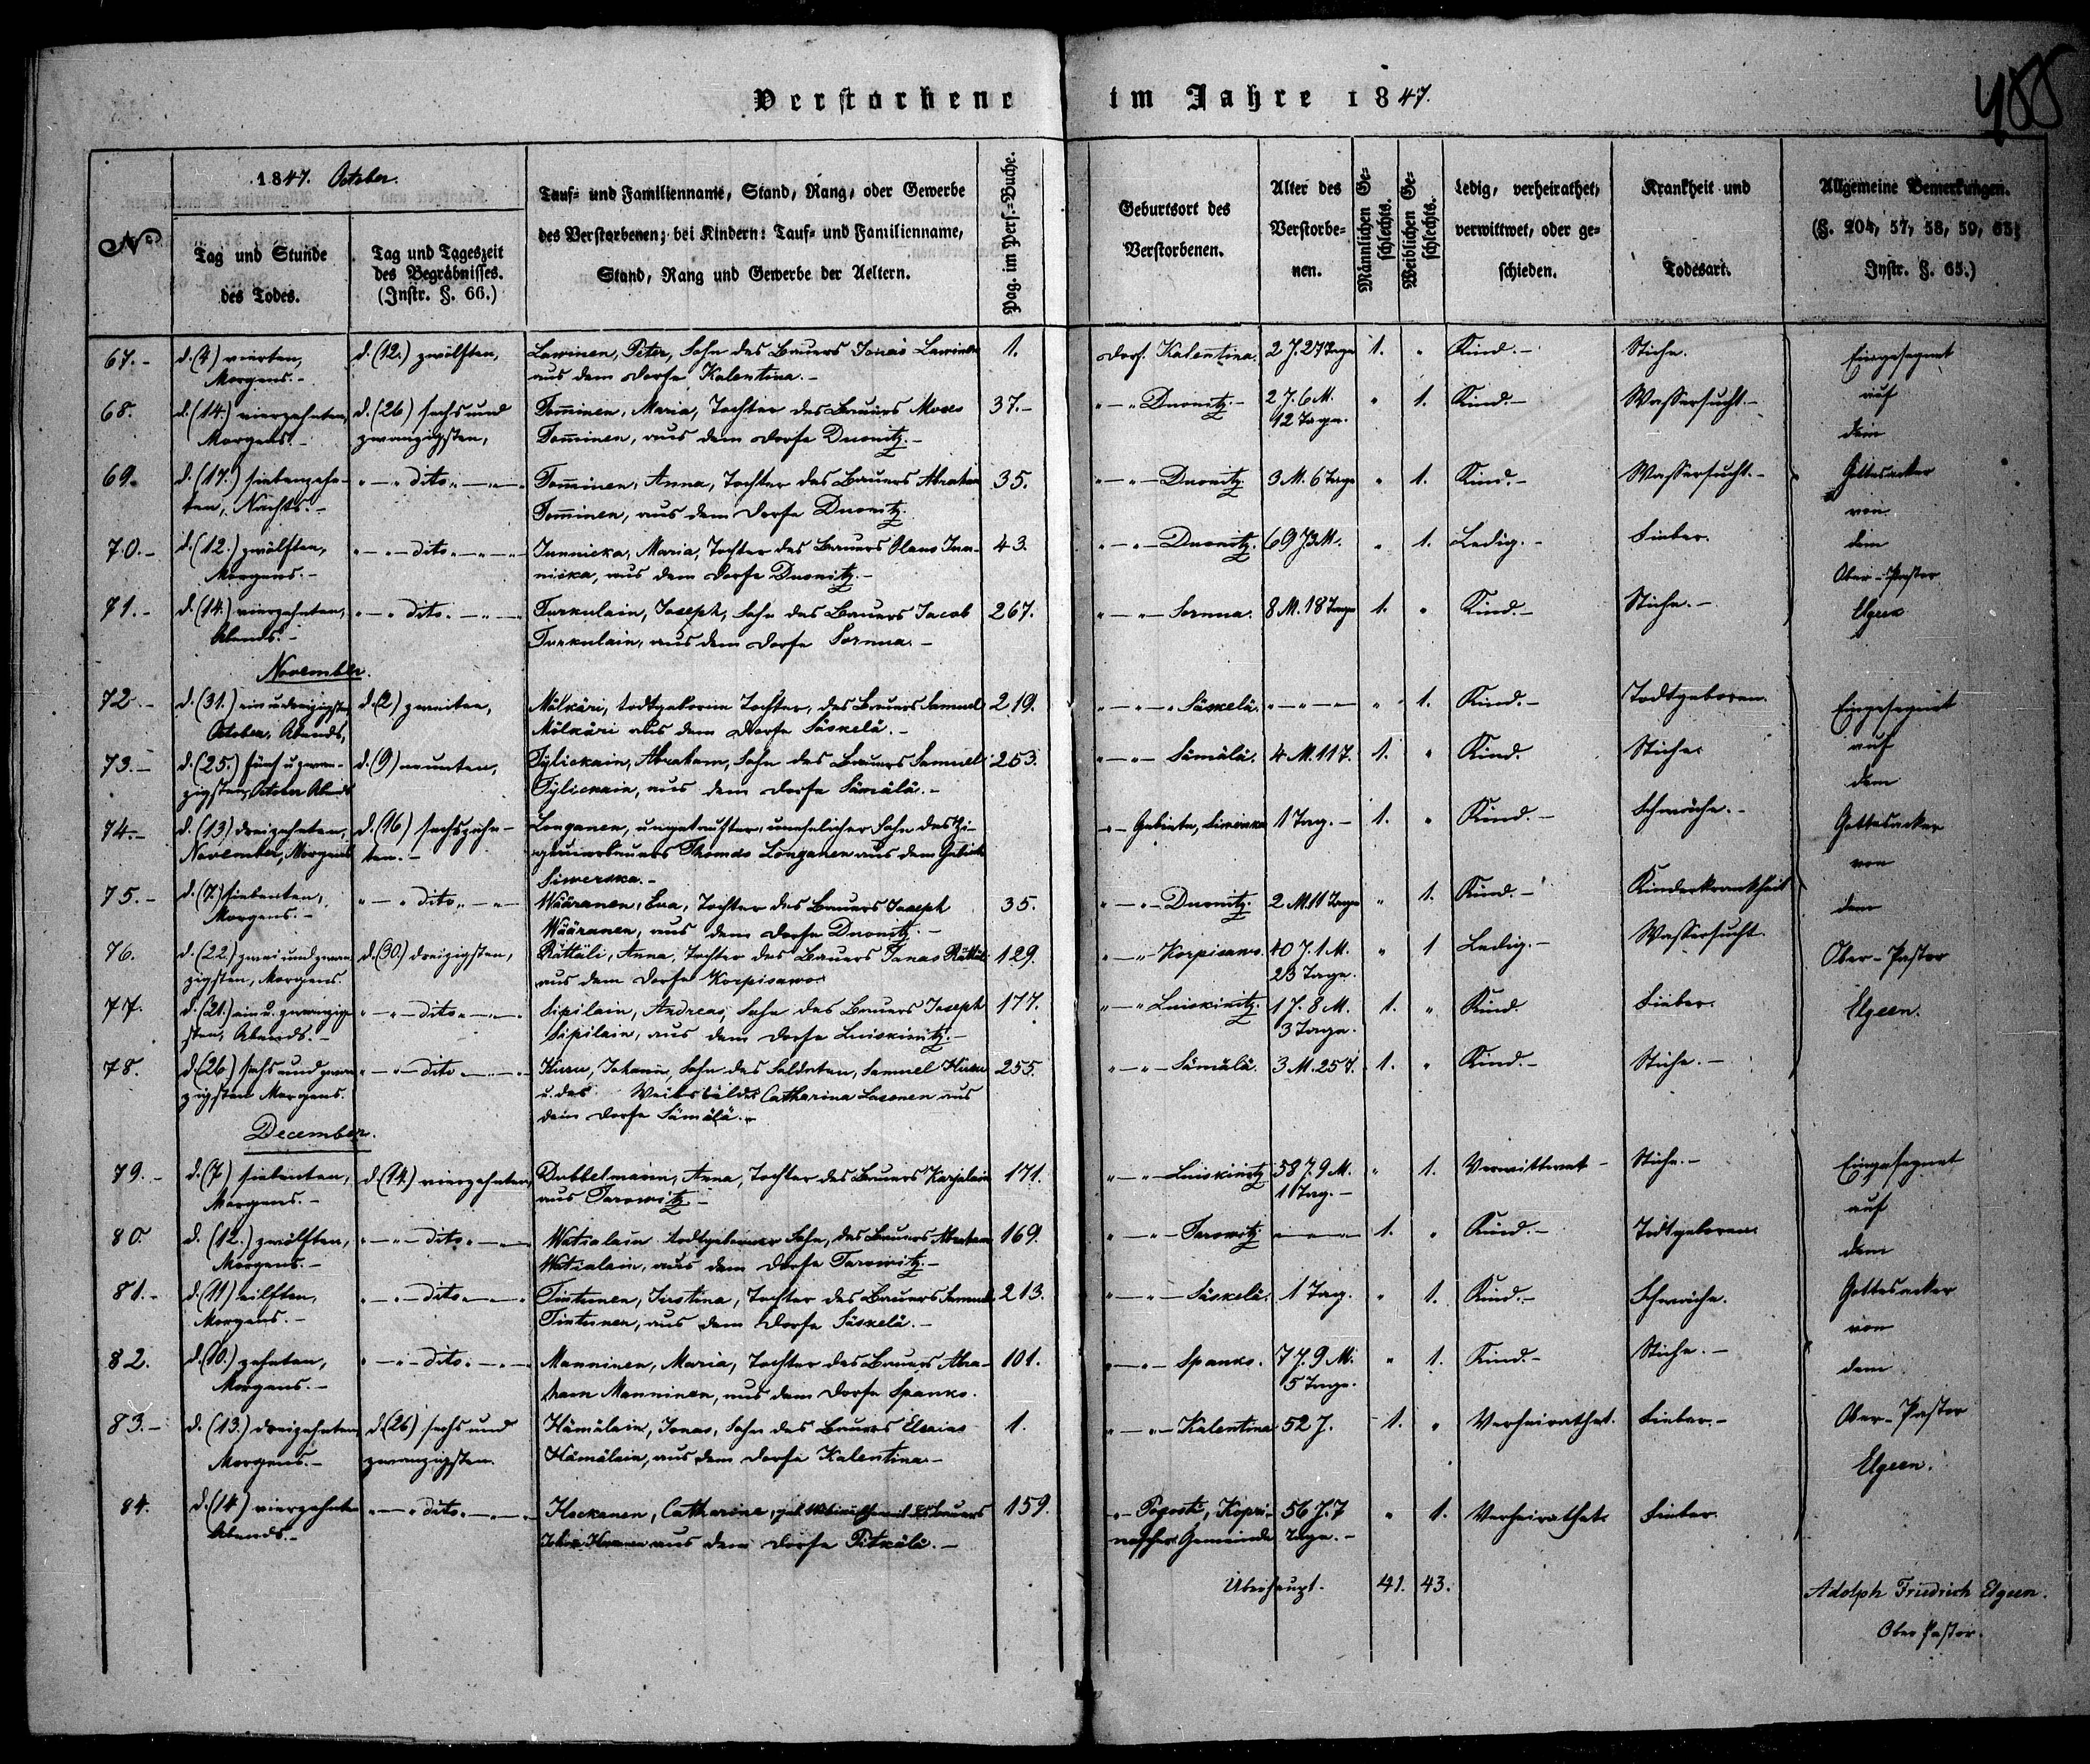 Verstorbene im Jahre 1847.
488
No
1847. October.
Tag und Stunde
des Todes.
Tag und Tageszeit
des Begräbnisses.
(Instr. §. 66.)
Tauf- und Familienname, Stand, Rang, oder Gewerbe
des Verstorbenen; bei Kindern: Tauf- und Familienname,
Stand, Rang und Gewerbe der Aeltern.
Pag. im Pers.-Buche.
Geburtsort des
Verstorbenen.
Alter des
Verstorbe-
nen.
Männlichen Ge-
schlechts.
Weiblichen Ge-
schlechts.
Ledig, verheirathet,
verwittwet, oder ge-
schieden.
Krankheit und
Todesart.
Allgemeine Bemerkungen.
(§. 204, 57, 58, 59, 63;
Instr. §. 65.)
67.- d. (4) vierten, d. (12.) zwölften, Lawinen, Peter, Sohn des Bauers Jonas Lawinen 1. Dorf. Kalentina. 2 J. 27 Tage 1. " Kind.- Stiche. Eingesegnet
Morgens.- aus dem Dorfe Kalentina.-
68. d. (14.) vierzehnten, d. (26) sechs und Tomminen, Maria, Tochter des Bauers Moses 37.- " — " Duonitz.- 2 J. 6 M. " 1. Kind.- Wassersucht.- auf
Morgens.- zwanzigsten, Tomminen, aus dem Dorfe Duonitz.- 12 Tage. dem
69. d. (17.) siebenzehn- " — " dito " — " Tomminen, Anna, Tochter des Bauers Abraham 35. " — " Duonitz. 3 M. 6 Tage " 1. Kind.- Wassersucht.- Gottesacker
ten, Nachts.- Tomminen, aus dem Dorfe Duonitz. von
70.- d. (12.) zwölften, " — " dito " — " Junnicka, Maria, Tochter des Bauers Olaus Jun- 43. " — " Duonitz. 69 J. 3 M. " 1. Ledig.- Fieber. dem
Morgens.- nicka, aus dem Dorfe Duonitz.- Ober-Pastor
71.- d. (14.) vierzehnten, " — " dito. " — " Turkulain, Joseph, Sohn des Bauers Jacob 267. " — " Sornua. 8 M. 18 Tage 1. " Kind.- Stiche.- Elgeen
Abends.- Turkulain, aus dem Dorfe Sornua.-
November.
72.- d. (31.) ein u dreizigsten d. (2) zweiten, Mölkäri, todtgeborene Tochter, des Bauers Samuel 219. " — " Säskelä. " — " " 1. Kind.- Todtgeboren. Eingesegnet
October, Abends, Mölkäri aus dem Dorfe Säskelä.-
73.- d. (25.) fünf u zwan- d. (9) neunten, Tylickain, Abraham, Sohn des Bauers Samuel 253. " — " Sämälä. 4 M. 11 T. 1. " Kind. Stiche. auf
zigsten, October Abends Tylickain, aus dem Dorfe Sämälä.- dem
74.- d. (13) dreizehnten, d. (16) sechszehn- Longanen, ungetaufter, unehelicher Sohn des 
November, Morgens ten.- Thomas Longanen aus dem Gebiete " — Gebiete, Siwerska 1 Tag.- 1. " Kind.- Schwäche.- Gottesacker
Siwerska.- von
75.- d. (7.) siebenten, " — " dito " — " Wääranen, Eva, Tochter des Bauers Joseph 35. " — " Duonitz. 2 M. 11 Tage " 1. Kind.- Kinderkrankheit dem
Morgens.- Wääranen, aus dem Dorfe Duonitz.-
76. d. (22.) zwei und zwan- d. (30.) dreizigsten, Rättäli, Anna, Tochter des Bauers Jonas Rättäli 129. " — " Korpisawo. 40 J. 1 M. " 1 Ledig.- Wassersucht. Ober-Pastor
zigsten, Morgens. aus dem Dorfe Korpisawo. 23 Tage.
77. d. (21.) ein u. zwanzig- " — " dito " — " Sipilain, Andreas, Sohn des Bauers Joseph 177. " — " Luiskinitz. 1 J. 8 M. 1. " Kind. Fieber. Elgeen.
sten, Abends.- Sipilain, aus dem Dorfe Luiskinitz.- 3 Tage.
78. d. (26) sechs und zwan- " — " dito " — " Kuru, Johann, Sohn des Soldaten, Samuel Kuru 255. " — " Sämälä. 3 M. 25 T. 1. " Kind.- Stiche.-
zigsten Morgens. u. des Weibsbildes Catharina Lasonen aus
dem Dorfe Sämälä.-
December.
79.- d. (7) siebenten, d. (14.) vierzehnten, Dubbelmann, Anna, Tochter des Bauers Karjalain 171. " — " Luiskinitz 58 J. 9 M. " 1. Verwittwet- Stiche.- Eingesegnet
Morgens.- aus Tarowitz.- 1 Tag.- auf
80 d. (12.) zwölften, " — " dito. " — " Watialain todtgeborener Sohn, des Bauers Abraham 169. " — " Tarowitz " — " 1. " Kind.- Todtgeboren. dem
Morgens.- Watialain, aus dem Dorfe Tarowitz.-
81.- d. (11) eilften, " — " dito " — " Tintunen, Justina, Tochter des Bauers Samuel 213. " — " Säskelä. 1 Tag. " 1. Kind.- Schwäche. Gottesacker
Morgens.- Tintunen, aus dem Dorfe Säskelä.- von
82. d. (10.) zehnten, " — " dito. " — " Manninen, Maria, Tochter des Bauers Abra- 101. " — " Spanko. 7 J. 9 M. " 1. Kind.- Stiche.- dem
Morgens.- ham Manninen, aus dem Dorfe Spanko. 5 Tage.
83.- d. (13.) dreizehnten d. (26) sechs und Hämälain, Jonas, Sohn des Bauers Elsaias 1. " — " Kalentina 52 J. 1. " Verheirathet. Fieber.- Ober-Pastor
Morgens.- zwanzigsten. Hämälain, aus dem Dorfe Kalentina.- Elgeen.
84. d. (14.) vierzehnten " — " dito. " — " Hockanen, Catharina, des Bauers 159. " — Pogosti, Kopri- 56 J. 7 " 1. Verheirathet. Fieber.
Abends.- aus dem Dorfe Pitkälä.- nascher Gemeinde Tage.-
Überhaupt. 41. 43.
Adolph Friedrich Elgeen.
Ober Pastor.